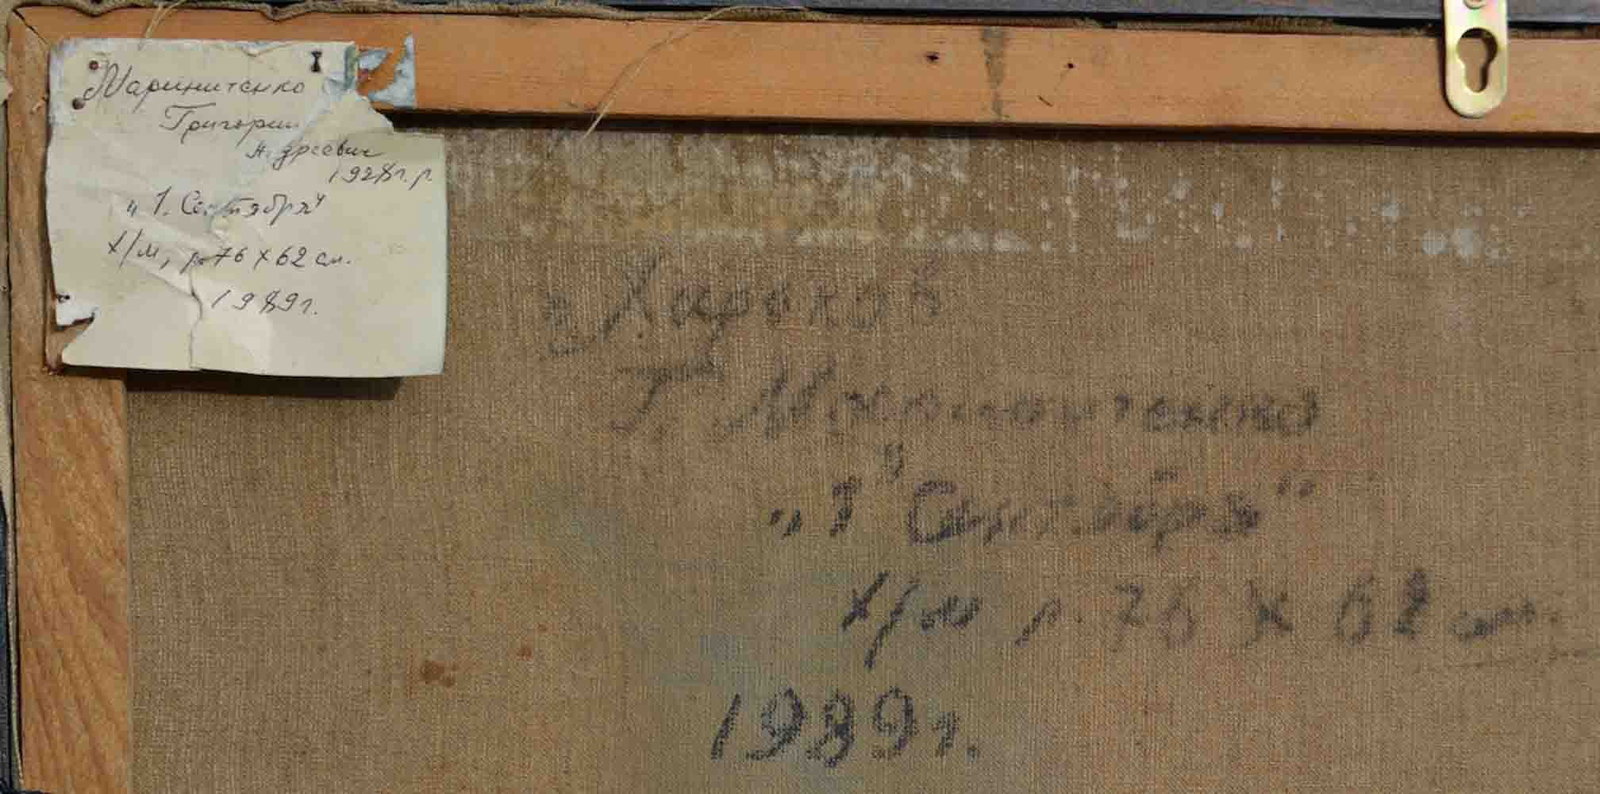 Мариитенко
Григорий
Андреевич
1928 г. р.
„1. Сентября"
х/м, р. 76 х 62 см.
1989 г.
г Харьков
Г
„1" Сентября"
х/м р. 76 х 62 см.
1989 г.